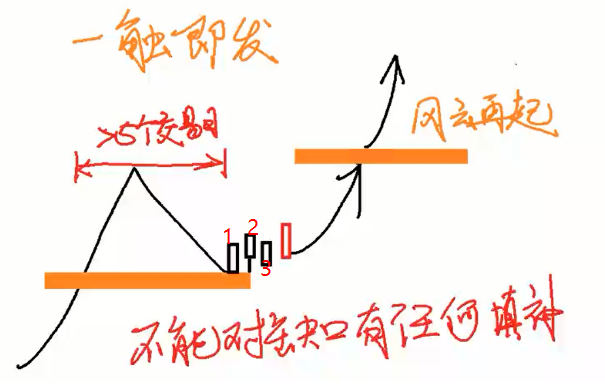 一触即发
>5个交易日
风云再起
1
2
3
不能对挂缺口有任何填补